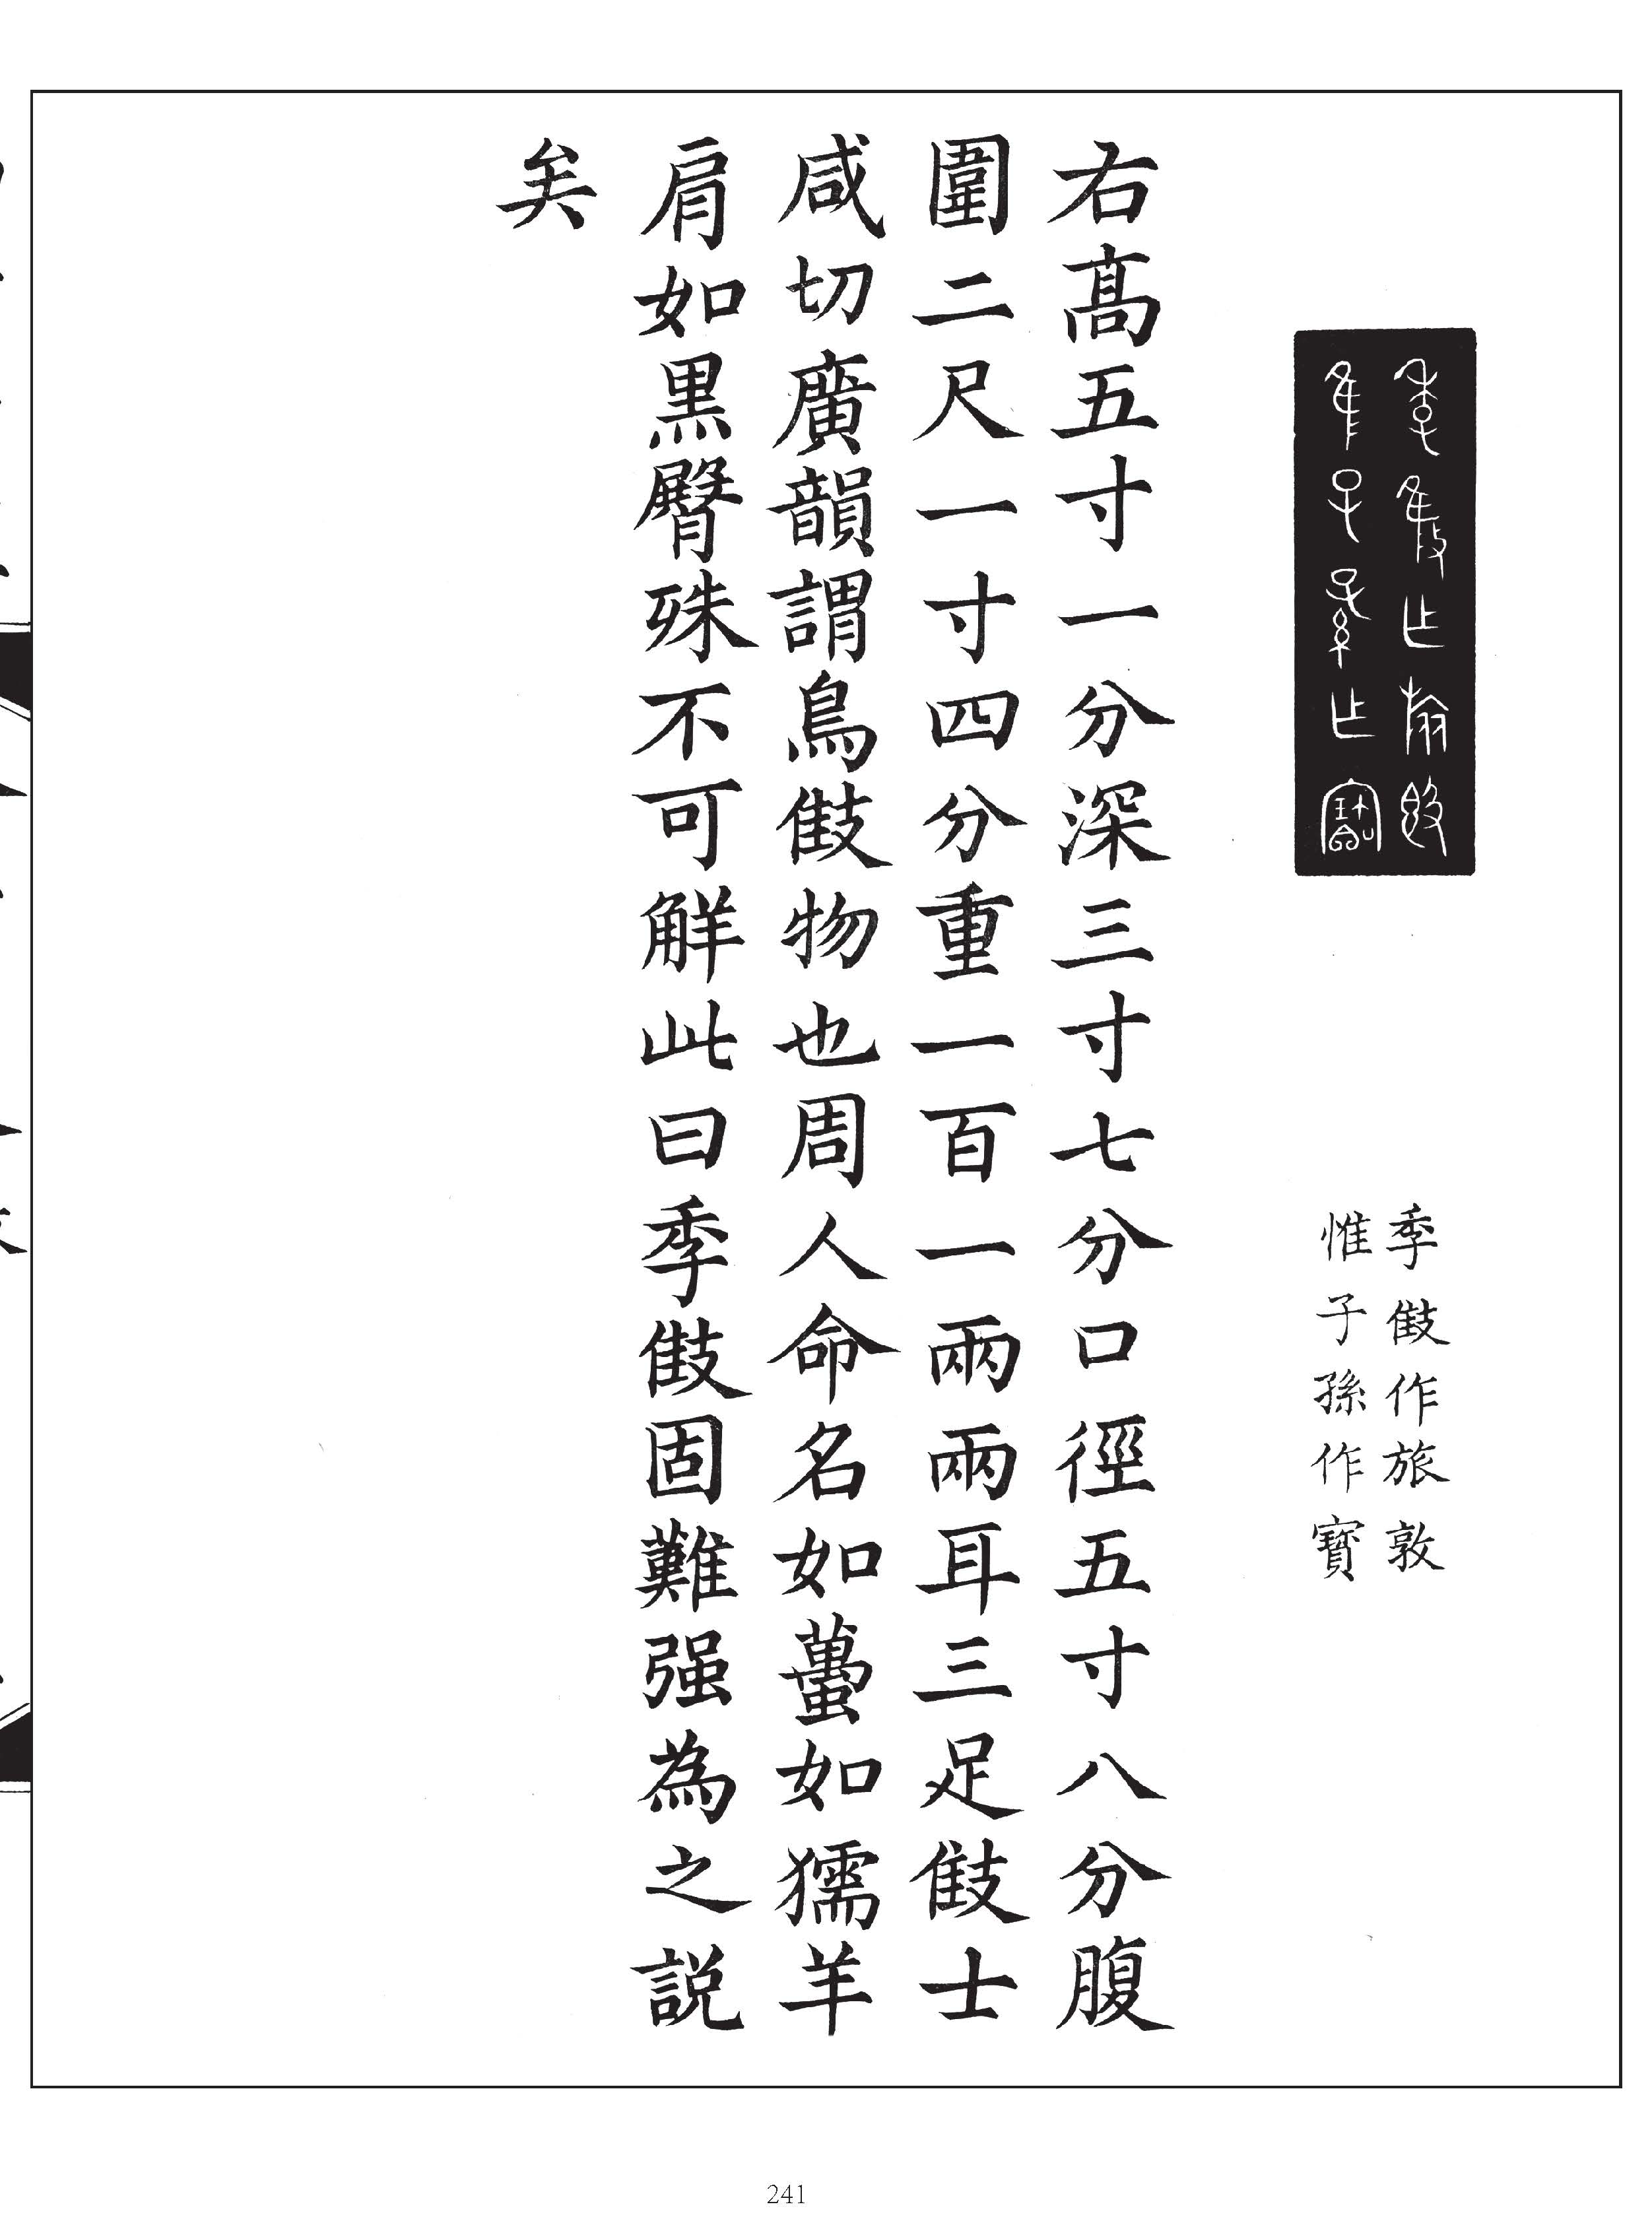 季乍旅𣪘
隹子孫乍寶
季作旅敦
惟子孫作寶
右高五寸一分深三寸七分口徑五寸八分腹
圍二尺一寸四分重一百一兩兩耳三足士
咸切廣韻謂鳥物也周人命名如蠆如獳羊
肩如黑臀殊不可解此曰季固難强為之説
矣
241